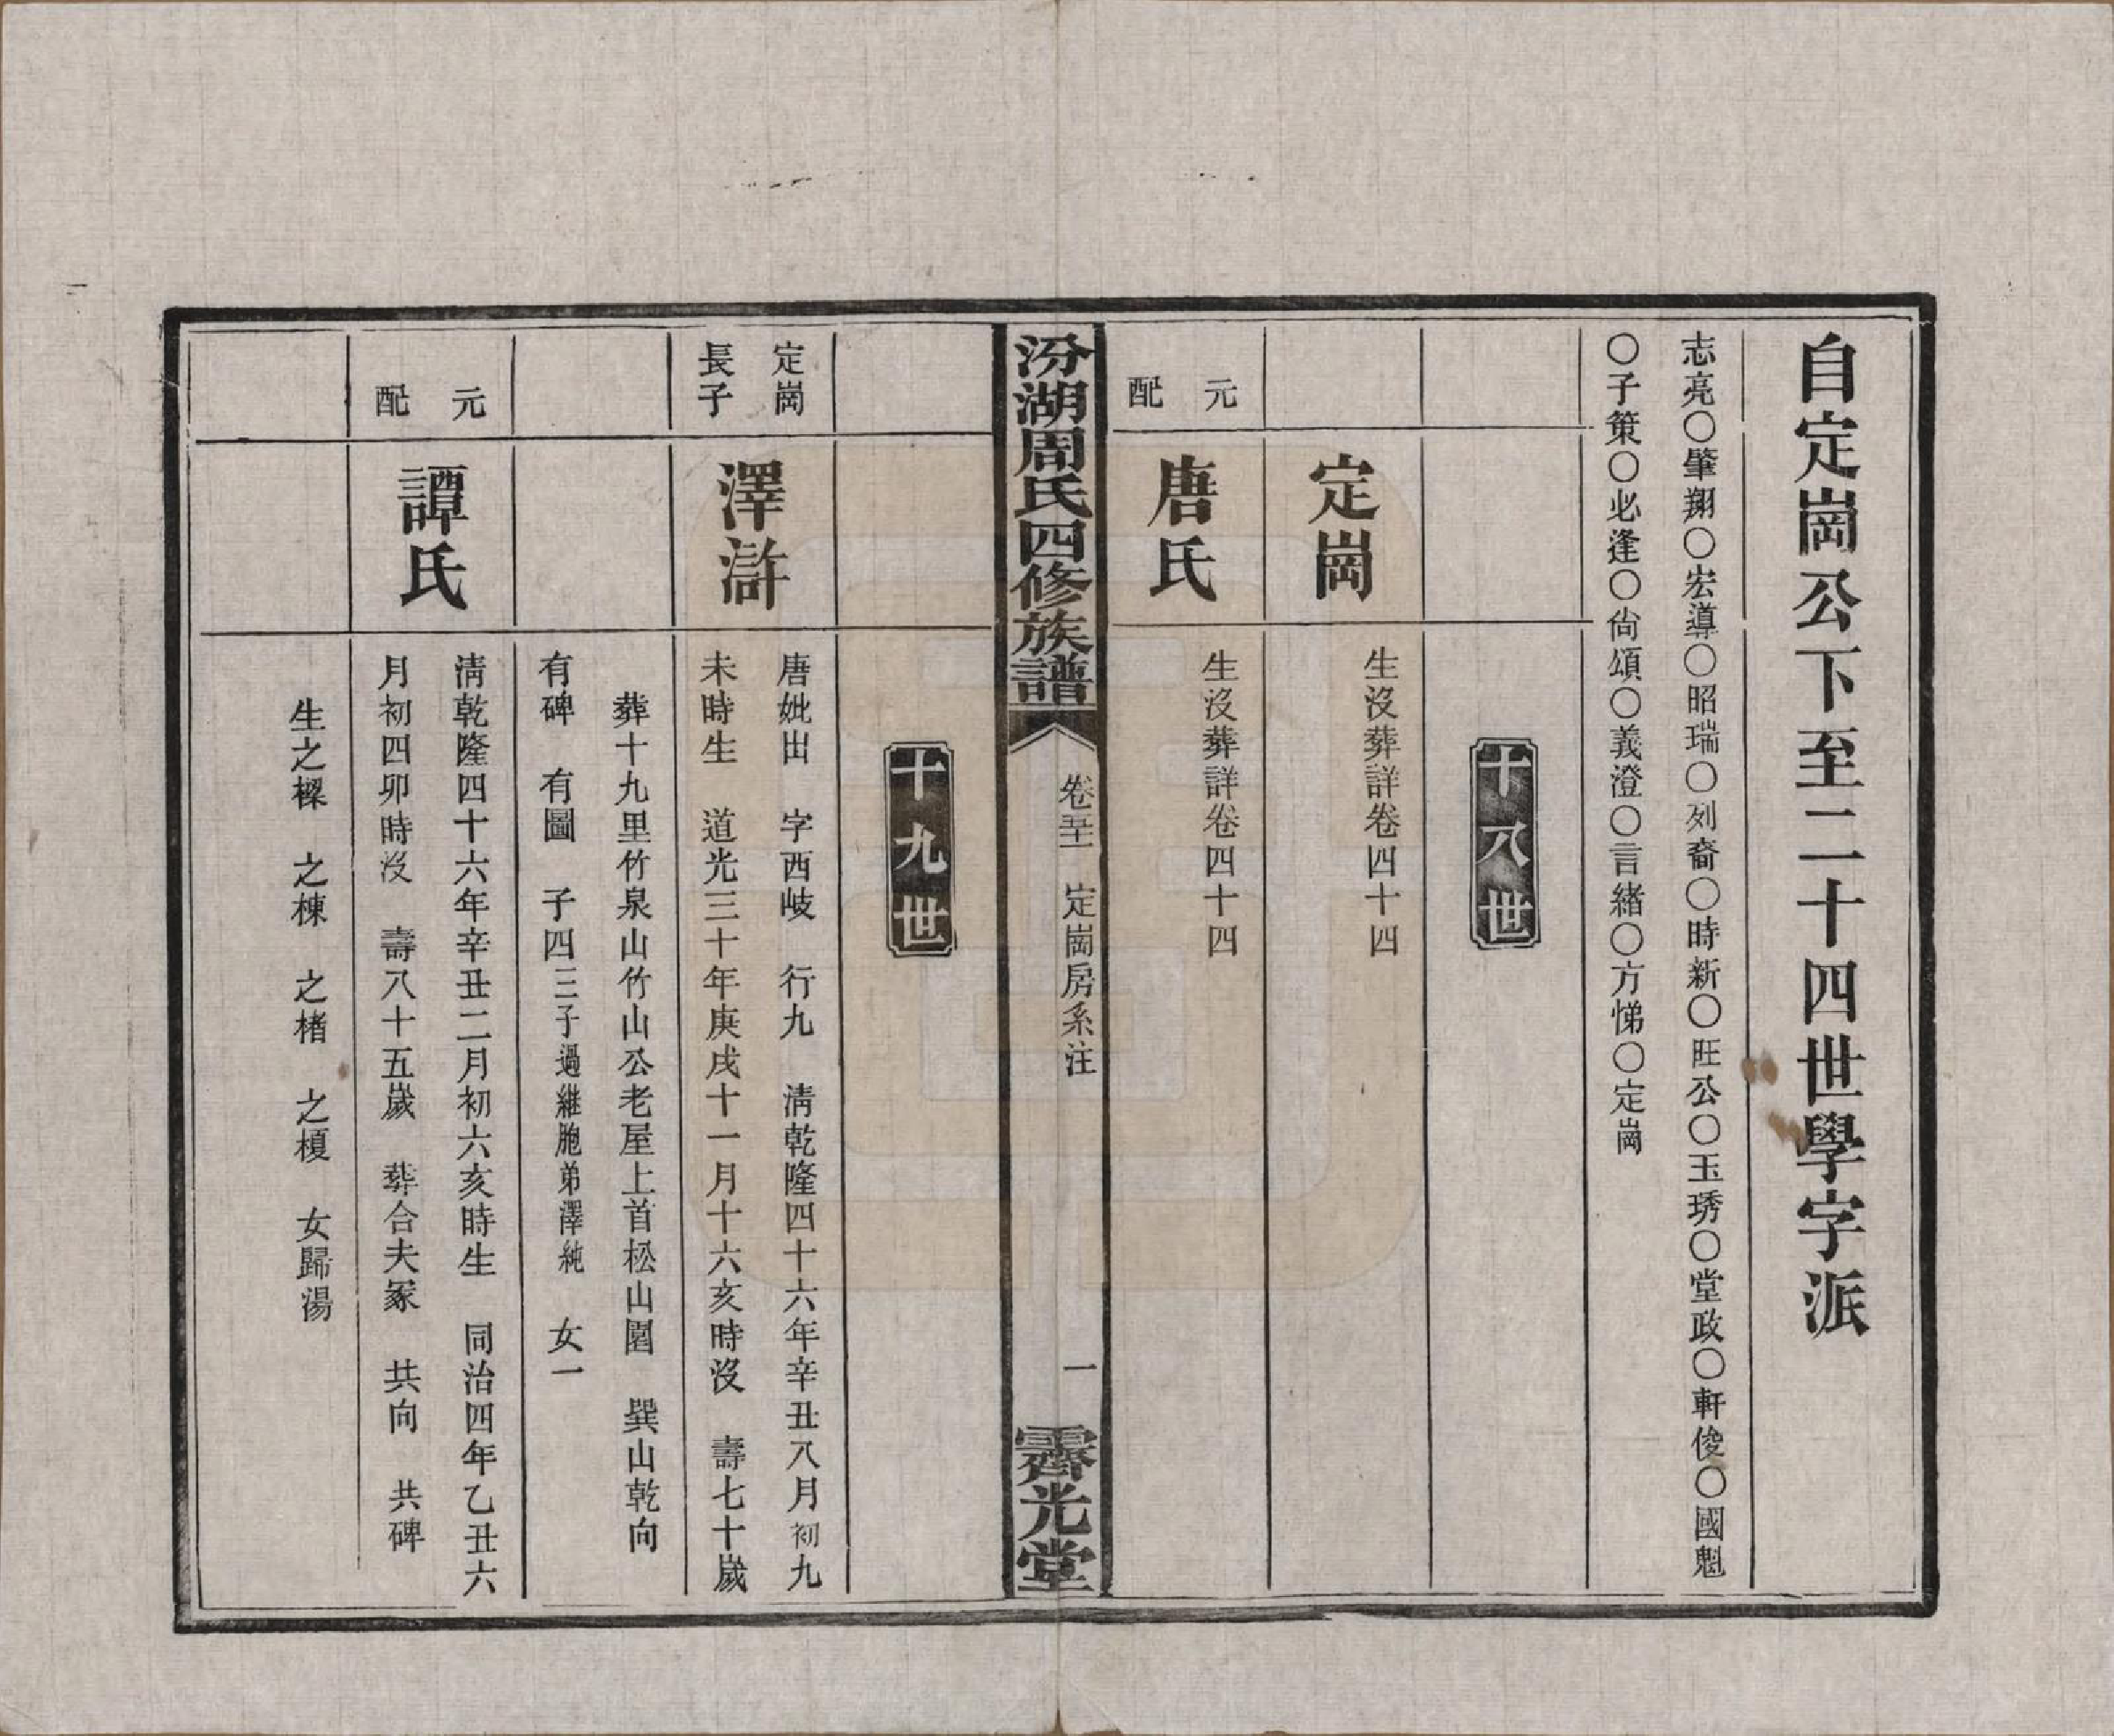 自定崗公下至二十四世學字派
志亮〇肇翔〇宏導〇昭瑞〇列裔〇時新〇旺公〇玉琇〇堂政〇軒俊〇國魁
〇子策〇必逢〇尙頌〇義澄〇言緒〇方悌〇定崗
十八世
定崗
生沒葬詳卷四十四
元配
唐氏
生沒葬詳卷四十四
汾湖周氏四修族譜
卷五十一 定崗房系注
一
霽光堂
十九世
定崗
長子
澤滸
唐妣出 字西岐 行九 淸乾隆四十六年辛丑八月初九
未時生 道光三十年庚戌十一月十六亥時沒 壽七十歲
葬十九里竹泉山竹山公老屋上首松山園 巽山乾向
有碑 有圖 子四三子過繼胞弟澤純 女一
元配
譚氏
淸乾隆四十六年辛丑二月初六亥時生 同治四年乙丑六
月初四卯時沒 壽八十五歲 葬合夫冢 共向 共碑
生之樑 之棟 之楮 之榎 女歸湯